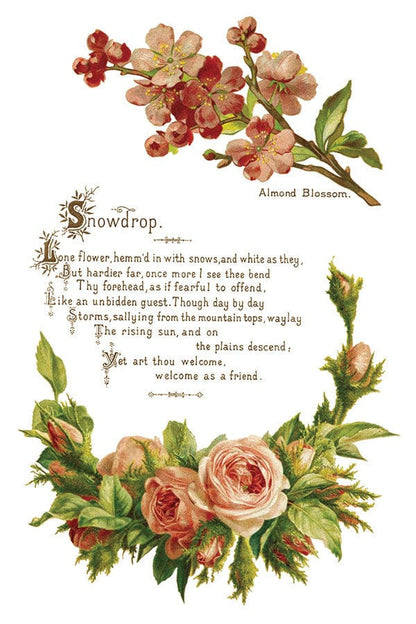 Almond Blossom.
Snowdrop.
Lone flower, hemm'd in with snows, and white as they,
But hardier far, once more I see thee bend
Thy forehead, as if fearful to offend,
Like an unbidden guest. Though day by day
Storms, sallying from the mountain tops, waylay
The rising sun, and on
the plains descend;
Yet art thou welcome,
welcome as a friend.